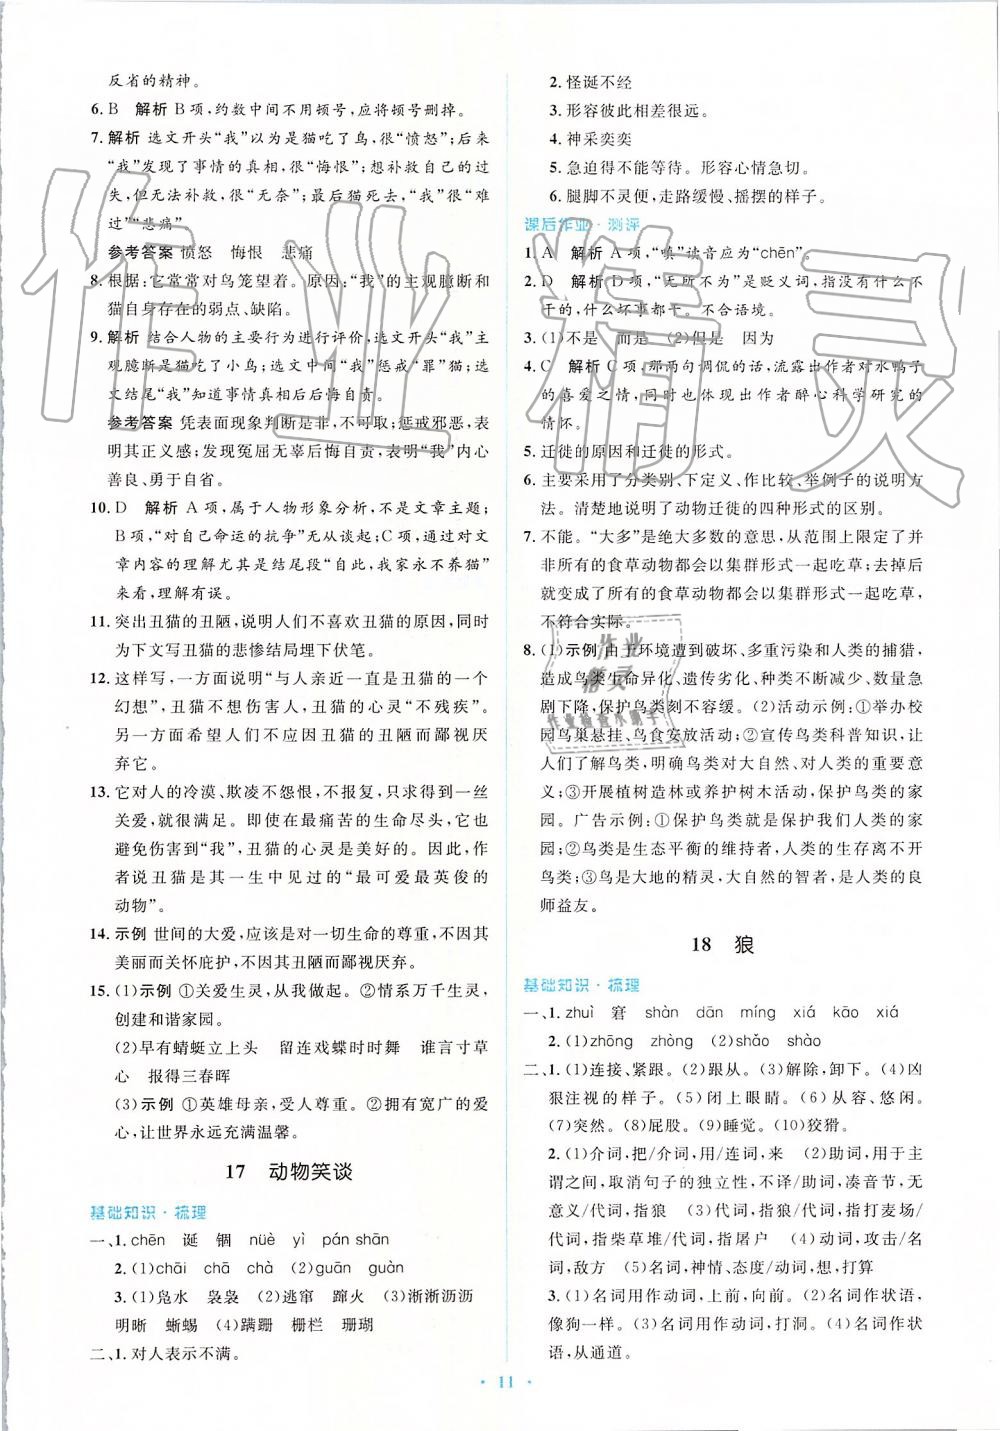 反省的精神。
6. B　解析 B 项,约数中间不用顿号,应将顿号删掉。
7. 解析 选文开头“我”以为是猫吃了鸟,很“愤怒”;后来
“我”发现了事情的真相,很“悔恨”;想补救自己的过
失,但无法补救,很“无奈”;最后猫死去,“我”很“难
过”“悲痛”。
参考答案 愤怒　悔恨　悲痛
8. 根据:它常常对鸟笼望着。原因:“我”的主观臆断和
猫自身存在的弱点、缺陷。
9. 解析 结合人物的主要行为进行评价,选文开头“我”主
观臆断是猫吃了小鸟;选文中间“我”惩戒“罪”猫;选
文结尾“我”知道事情真相后后悔自责。
参考答案 凭表面现象判断是非,不可取;惩戒邪恶,表
明其正义感;发现冤屈无辜后悔自责,表明“我”内心
善良、勇于自省。
10. D　解析 A 项,属于人物形象分析,不是文章主题;
B 项,“对自己命运的抗争”无从谈起;C 项,从对文
章内容的理解尤其是结尾段“自此,我家永不养猫”
来看,理解有误。
11. 突出丑猫的丑陋,说明人们不喜欢丑猫的原因,同时
为下文写丑猫的悲惨结局埋下伏笔。
12. 这样写,一方面说明“与人亲近一直是丑猫的一个
幻想”,丑猫不想伤害人,丑猫的心灵“不残疾”。
另一方面希望人们不应因丑猫的丑陋而鄙视厌
弃它。
13. 它对人的冷漠、欺凌不怨恨,不报复,只求得到一丝
关爱,就很满足。即使在最痛苦的生命尽头,它也
避免伤害到“我”,丑猫的心灵是美好的。因此,作
者说丑猫是其一生中见过的“最可爱最英俊的
动物”。
14. 示例 世间的大爱,应该是对一切生命的尊重,不因其
美丽而关怀庇护,不因其丑陋而鄙视厌弃。
15. (1)示例 ①关爱生灵,从我做起。②情系万千生灵,
创建和谐家园。
(2)早有蜻蜓立上头　留连戏蝶时时舞　谁言寸草
心　报得三春晖
(3)示例 ①英雄母亲,受人尊重。②拥有宽广的爱
心,让世界永远充满温馨。
17　动物笑谈
基础知识·梳理
一、1. chēn　诞　锢　nüè　yì　pán shān
2. (1)chāi　chā　chà　(2)guān　guàn
3. (1)凫水　袅袅　(2)逃窜　蹿火　(3)淅淅沥沥
明晰　蜥蜴　(4)蹒跚　栅栏　珊瑚
二、1. 对人表示不满。
2. 怪诞不经
3. 形容彼此相差很远。
4. 神采奕奕
5. 急迫得不能等待。形容心情急切。
6. 腿脚不灵便,走路缓慢、摇摆的样子。
课后作业·测评
1. A　解析 A 项,“嗔”读音应为“chēn”。
2. D　解析 D 项,“无所不为”是贬义词,指没有什么不
干的,什么坏事都干。不合语境。
3. (1)不是　而是　(2)但是　因为
4. C　解析 C 项,那两句调侃的话,流露出作者对水鸭子
的喜爱之情,同时也体现出作者醉心科学研究的
情怀。
5. 迁徙的原因和迁徙的形式。
6. 主要采用了分类别、下定义、作比较、举例子的说明方
法。清楚地说明了动物迁徙的四种形式的区别。
7. 不能。“大多”是绝大多数的意思,从范围上限定了并
非所有的食草动物都会以集群形式一起吃草;去掉后
就变成了所有的食草动物都会以集群形式一起吃草,
不符合实际。
8. (1)示例 由于环境遭到破坏、多重污染和人类的捕猎,
造成鸟类生命异化、遗传劣化、种类不断减少、数量急
剧下降,保护鸟类刻不容缓。(2)活动示例:①举办校
园鸟巢悬挂、鸟食安放活动;②宣传鸟类科普知识,让
人们了解鸟类,明确鸟类对大自然、对人类的重要意
义;③开展植树造林或养护树木活动,保护鸟类的家
园。广告示例:①保护鸟类就是保护我们人类的家
园;②鸟类是生态平衡的维持者,人类的生存离不开
鸟类;③鸟是大地的精灵,大自然的智者,是人类的良
师益友。
18　狼
基础知识·梳理
一、1. zhuì　窘　shàn　dān　míng　xiá　kāo　xiá
2. (1)zhōng　zhòng　(2)shǎo　shào
二、1. (1)连接、紧跟。(2)跟从。(3)解除,卸下。(4)凶
狠注视的样子。(5)闭上眼睛。(6)从容、悠闲。
(7)突然。(8)屁股。(9)睡觉。(10)狡猾。
2. (1)介词,把/介词,用/连词,来　(2)助词,用于主
谓之间,取消句子的独立性,不译/助词,凑音节,无
意义/代词,指狼　(3)代词,指打麦场/代词,
指柴草堆/代词,指屠户　(4)动词,攻击/名
词,敌方　(5)名词,神情、态度/动词,想,打算
3. (1)名词用作动词,上前,向前。(2)名词作状语,
像狗一样。(3)名词用作动词,打洞。(4)名词作状
语,从通道。
· 11 ·
作业精灵
作业
精灵